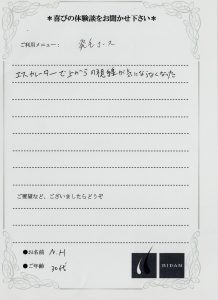 ＊喜びの体験談をお聞かせ下さい＊
ご利用メニュー： 発毛コース
エスカレーターで下からの視線が気にならなくなった
ご要望など、ございましたらどうぞ
●お名前 N.H
●ご年齢 30代
BIDAN